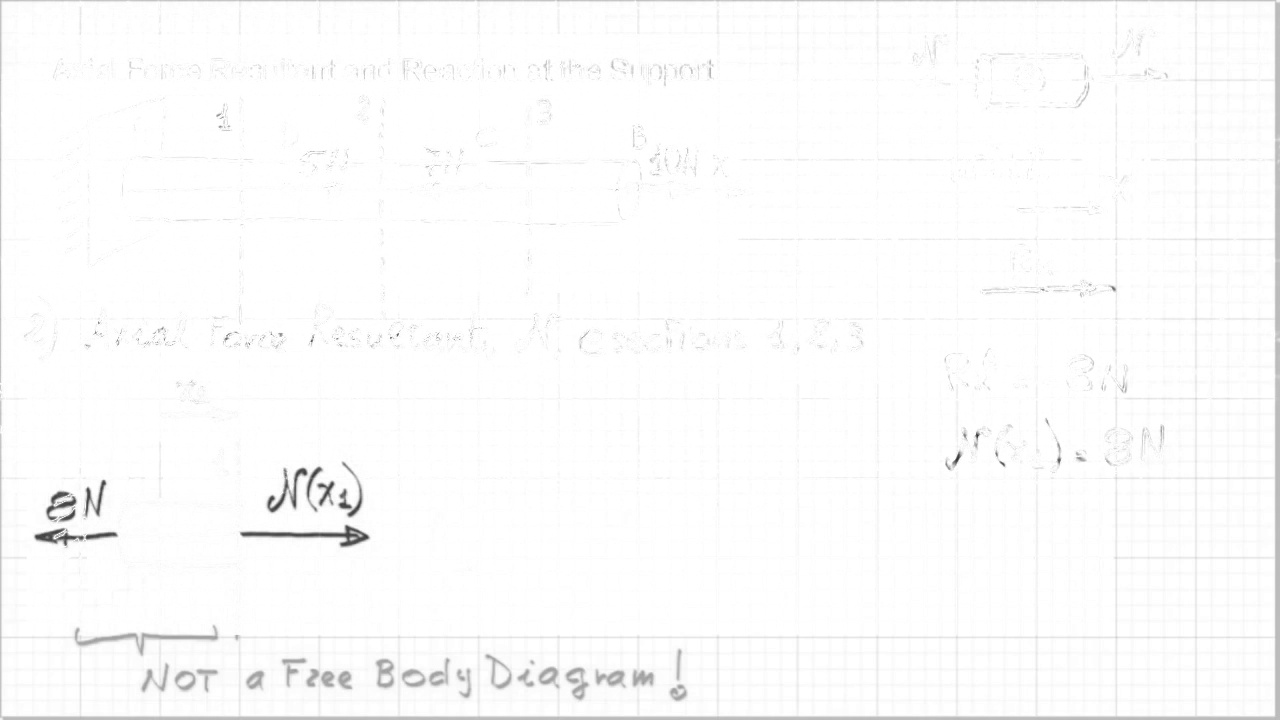 Axial Force Resultant and Reaction at the Support
N N
1 2 3
D C B
5N 7N 10N x
x
2) Axial Force Resultant, N, @ sections 1, 2, 3
= 8N
N(x1) = 8N
8N N(x1)
NOT a Free Body Diagram!